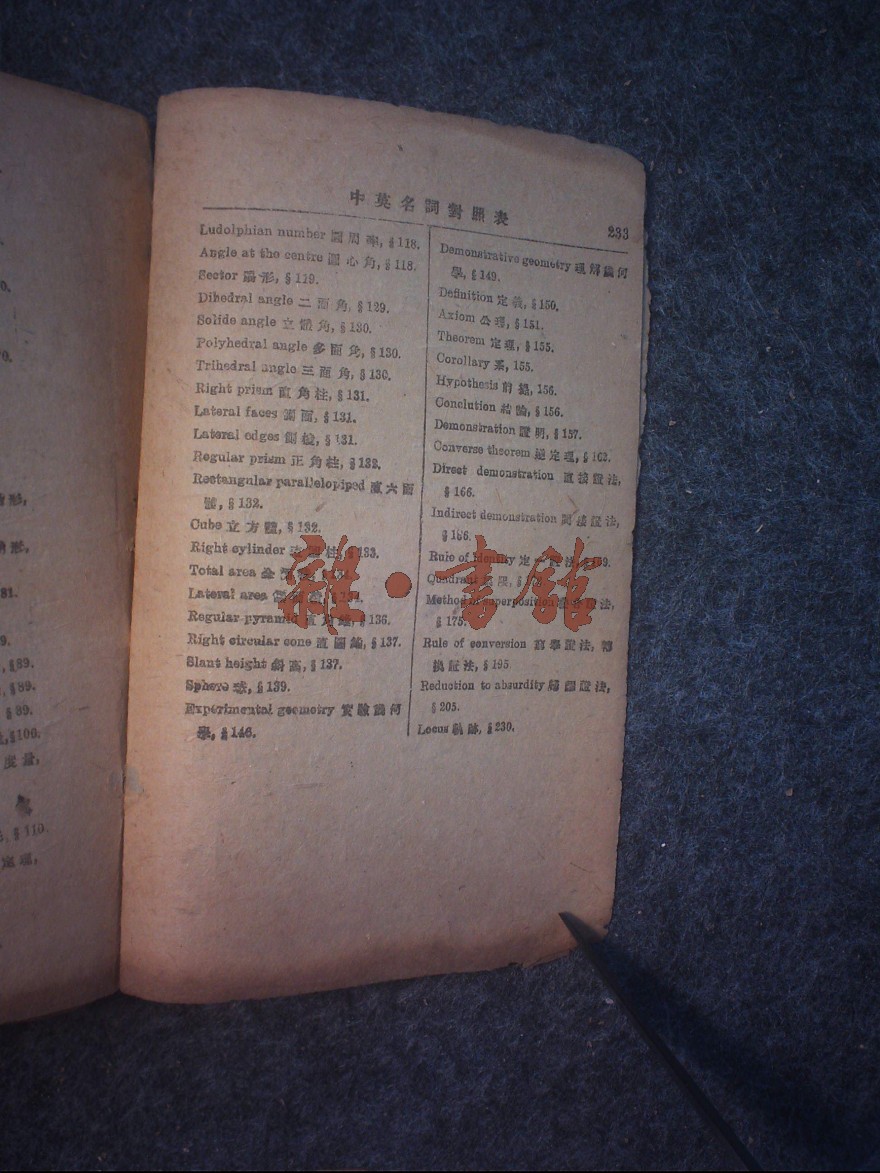 中英名詞對照表
233
Ludolphian number 圓周率, §118.
Angle at the centre 圓心角, §118.
Sector 扇形, §119.
Dihedral angle 二面角, §129.
Solide angle 立體角, §130.
Polyhedral angle 多面角, §130.
Trihedral angle 三面角, §130.
Right prism 直角柱, §131.
Lateral faces 側面, §131.
Lateral edges 側稜, §131.
Regular prism 正角柱, §132.
Rectangular parallelopiped 直六面
體, §132.
Cube 立方體, §132.
Right cylinder 柱, §133.
Total area 全
Lateral area
Regular pyramid 直角錐, §136.
Right circular cone 直圓錐, §137.
Slant height 斜高, §137.
Sphere 球, §139.
Experimental geometry 實驗幾何
學, §146.
Demonstrative geometry 理解幾何
學, §149.
Definition 定義, §150.
Axiom 公理, §151.
Theorem 定理, §155.
Corollary 系, 155.
Hypothesis 前提, 156.
Conclution 結論, §156.
Demonstration 證明, §157.
Converse theorem 逆定理, §163.
Direct demonstration 直接證法,
§166.
Indirect demonstration 間接證法,
§166.
Rule of identity
Quadrant
Method of superposition 證法,
§175.
Rule of conversion 窮舉證法, 轉
換証法, §195.
Reduction to absurdity 歸謬證法,
§205.
Locus 軌跡, §230.
雜·書館
形,
形,
81.
9.
, §89.
, §89.
§89.
, §100.
度量,
, §110.
定理,